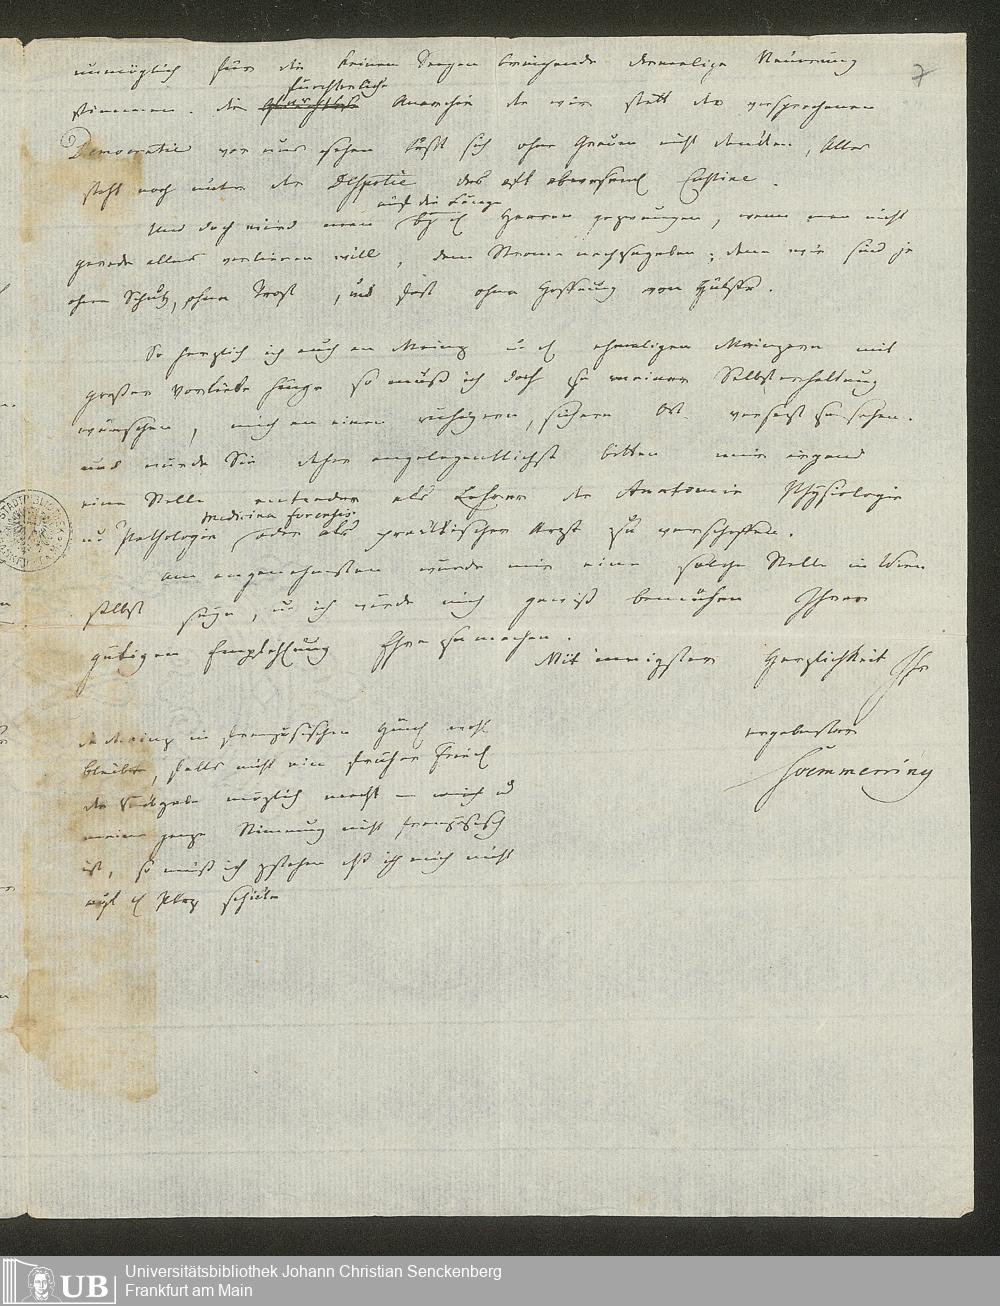 7
unmöglich für die keinen Seegen bringende dermalige Neuerung
fürchterliche
stimmen. die Anarchie die wir statt der versprochenen
Democratie vor uns sehen läßt sich ohne Grauen nicht denken, Alles
steht noch unter der Despotie des oft abwesend Custine.
auf die Länge
Und doch wird man Herren gezwungen, wenn man nicht
gerade alles verlieren will, dem Strome nachzugeben; denn wir sind ja
ohne Schutz, ohne Trost, und fast ohne Hoffnung von Hülfe.
So herzlich ich auch an Mainz u. ehmaligen Mainzern mit
großer Vorliebe hänge so muß ich doch zu meiner Selbsterhaltung
wünschen, mich an einen ruhigern, sichern Ort versezt zu sehen.
und wurde Sie daher angelegentlichst bitten mir irgend
eine Stelle entweder als Lehrer der Anatomie Physiologie
Medicina forensis
u Pathologie oder als praktischer Arzt zu verschaffen.
am angenehmsten würde mir eine solche Stelle in Wien
selbst seyn, u ich würde mich gewiß bemühen Ihrer
gütigen Empfehlung Ehre zu machen.
Mit innigster Herzlichkeit Ihr
ergebenster
Soemmerring
da Mainz in französischen Händ wohl
bleibt, falls nicht ein früher Fried
die Rückgabe möglich macht — mich u
meine ganze Stimmung nicht französisch
ist, so muß ich gestehen daß ich mich nicht
auf Plaz schicke
STADTBIBLIOTHEK FRANKFURT A M
UB
Universitätsbibliothek Johann Christian Senckenberg
Frankfurt am Main